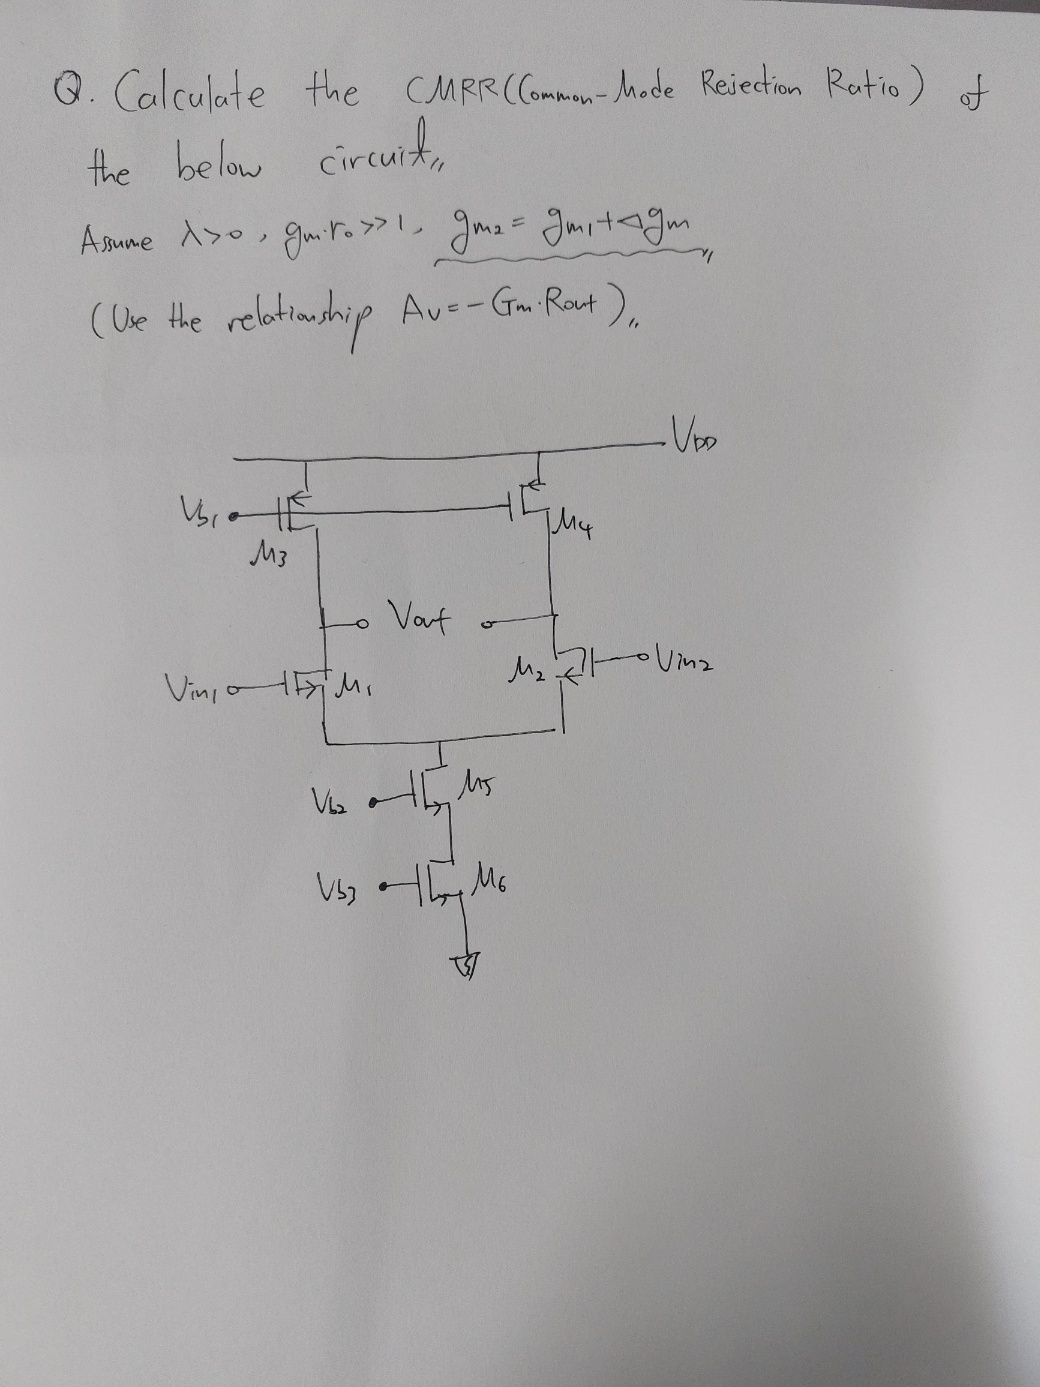 Q. Calculate the CMRR(Common-Mode Rejection Ratio) of
the below circuit,,
Assume λ>0, gm·ro>>1, gm2 = gm1+△gm
(Use the relationship Av=-Gm·Rout),,
VDD
Vb1
M3
M4
Vout
Vin1
M1
M2
Vin2
Vb2
M5
Vb3
M6